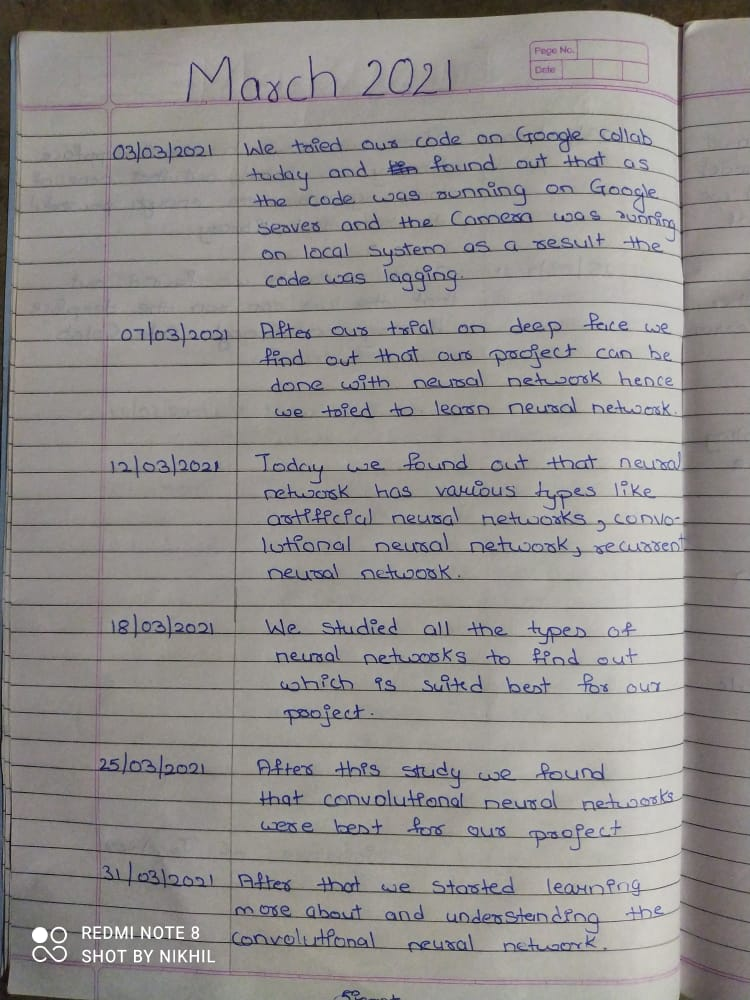 Page No.
Date
March 2021
03/03/2021 We tried our code on Google Collab
today and found out that as
the code was running on Google
server and the Camera was running
on local system as a result the
code was lagging.
07/03/2021 After our trial on deep face we
find out that our project can be
done with neural network hence
we tried to learn neural network.
12/03/2021 Today we found out that neural
network has various types like
artificial neural networks, convo-
lutional neural network, recurrent
neural network.
18/03/2021 We studied all the types of
neural networks to find out
which is suited best for our
project.
25/03/2021 After this study we found
that convolutional neural networks
were best for our project
31/03/2021 After that we started learning
more about and understanding the
convolutional neural network.
REDMI NOTE 8
SHOT BY NIKHIL